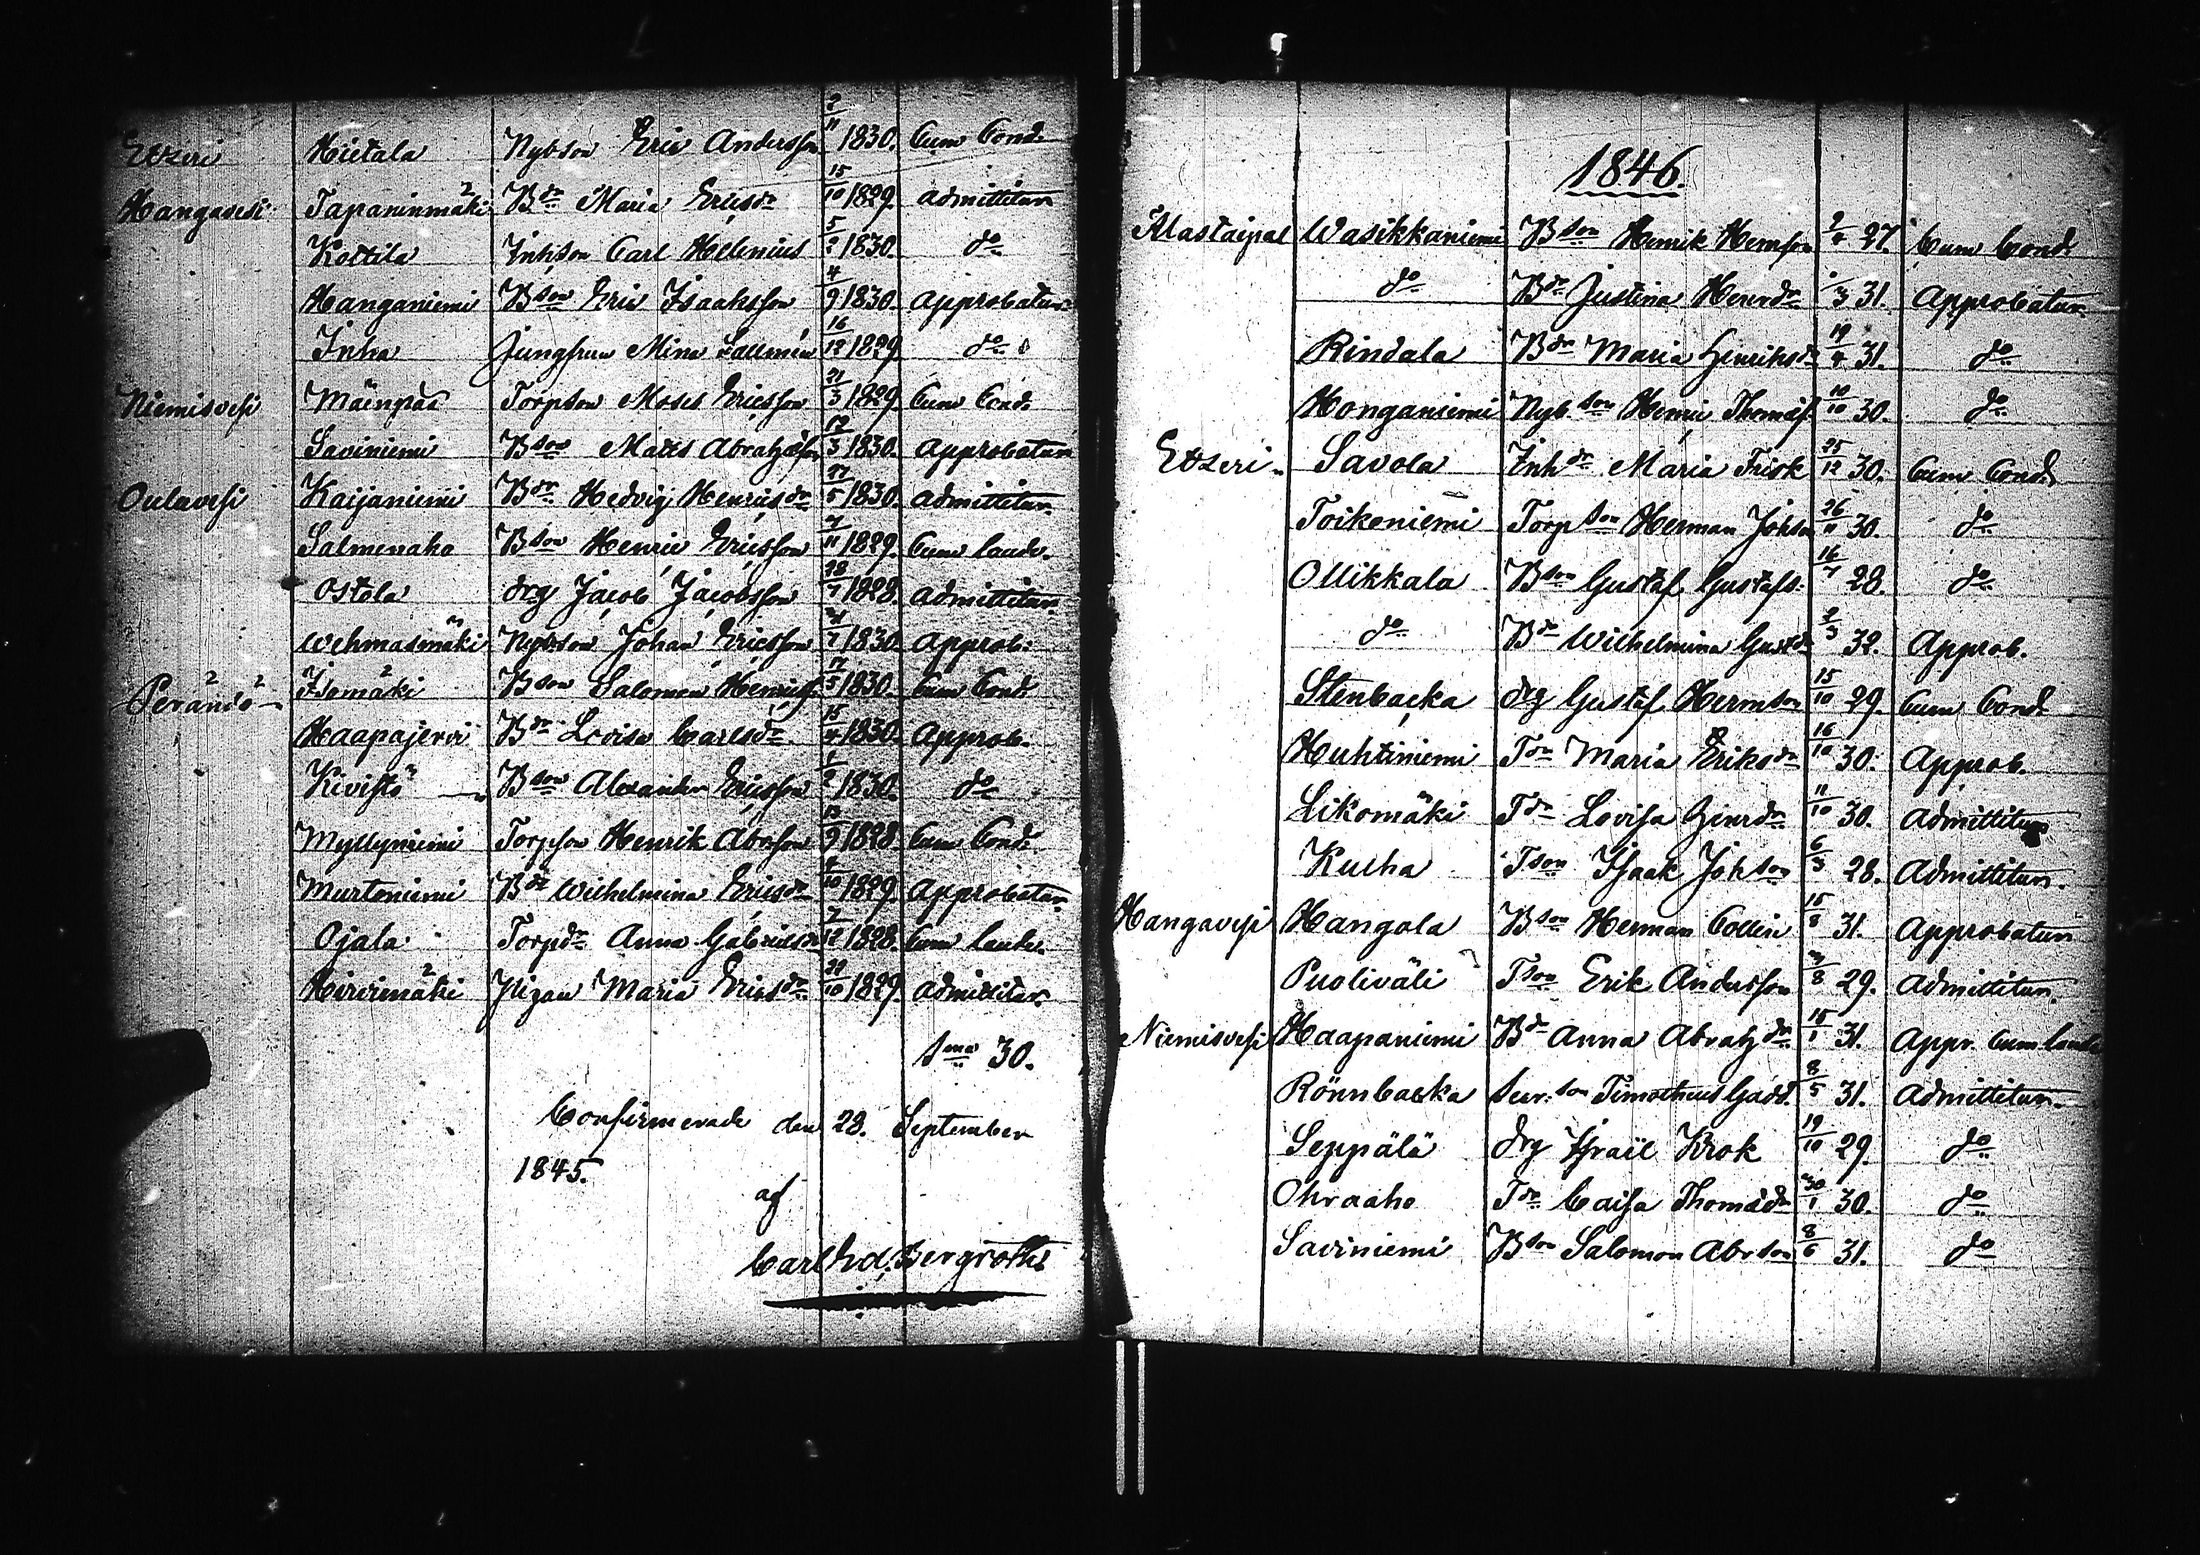 Etzeri Hietala Nybson Eric Andersson 2/11 1830. Cum Cond:
Hangavesi Tapaninmäki Bdr Maria Ericsdr 15/10 1829. admittitur
Kottila Inhson Carl Helenius 5/2 1830. do
Hanganiemi Bson Eric Isaaksson 4/9 1830. approbatur
Inha Jungfrun Mina 16/12 1829 do
Niemisvesi Mäinpää Torpson Moses Ericsson 21/3 1829. Cum Cond:
Saviniemi Bson Matts Abrahsson 17/3 1830. Approbatur
Oulavesi Kaijaniemi Bdr Hedvig Henricsdr 5 1830. admittitur
Salmenaho Bson Henric Ericsson 11 1829. Cum laude.
Ostola drg Jacob Jacobsson 28/7 1828. admittitur
Wehmasmäki Nybson Johan Ericsson 1830. Approb:
Perändö Isomäki Bson Salomon Henricss 5 1830 Cum Cond:
Haapajervi Bdr Lovisa Carlsdr 15/4 1830. Approb.
Kivistö Bson Alexander Ericsson 2 1830. do
Myllyniemi Torpson Henrik Abrsson 9 1828. Cum Cond:
Murtoniemi Bdr Wilhelmina Ericsdr 4/10 1829. Approbatur
Ojala Torpdr Anna Gabrielsdr 7/12 1828. Cum laude.
Hirvimäki Pigan Maria Ericsdr 29/10 1829. admittitur
Sma 30.
Confirmerade den 28. September
1845.
af
Carl Bergroth
1846.
Alastaipal Wasikkaniemi Bson Henrik Hemsson 27. Cum Cond:
do Bdr Justina Henrdr 3 31. Approbatur
Rindala Bdr Maria Henriksdr 19/4 31. do
Honganiemi Nyb.son Henric Thomass. 10/10 30. do
Etzeri Savola Inhdr Maria Frisk 25/12 30. Cum Cond:
Toikeniemi Torpson Herman Johson 26/11 30. do
Ollikkala Bson Gustaf Gustafs: 16/7 28. do
do Bdr Wilhelmina Gustdr 2/3 32. Approb.
Stenbacka drg Gustaf Hermson 15/10 29. Cum Cond:
Huhtiniemi Tdr Maria Eriksdr 16/10 30. Approb.
Likomäki Tdr Lovisa Henrdr 11/10 30. Admittitur
Kulha Tson Isaak Johson 6/3 28. Admittitur.
Hangavesi Hangola Bson Herman Collin 15/8 31. Approbatur
Puoliväli Tson Erik Andersson 8 29. Admittitur.
Niemisvesi Haapaniemi Bdr Anna Abrahdr 15/1 31. Appr. Cum laude
Rönnbacka son Timotheus Gadd. 8/5 31. Admittitur.
Seppälä drg Israel Krok 19/10 29. do
Ohraaho Tdr Caisa Thomasdr 30/1 30. do
Saviniemi Bson Salomon Abrson 8/6 31. do